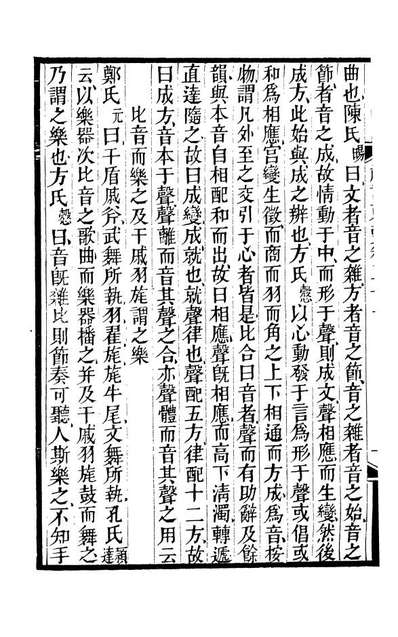 曲也陳氏暘曰文者音之雜方者音之節音之雜者音之始音之
節者音之成故情動于中而形于聲則成文聲相應而生變然後
成方此始與成之辨也方氏慤以心動發于言為形于聲或倡或
和為相應宫變生徵而商而羽而角之上下相通而方成為音按
物謂凡外至之交引于心者皆是比合曰音者聲而有助辭及餘
韻與本音自相配和而出故曰相應聲旣相應而高下清濁轉遞
直達隨之故曰成變成就也就聲律也聲配五方律配十二方故
曰成方音本于聲聲離而音其聲之合亦聲體而音其聲之用云
比音而樂之及干戚羽旄謂之樂
鄭氏元曰干盾戚斧武舞所執羽翟旄旄牛尾文舞所執孔氏穎達
云以樂器次比音之歌曲而樂器播之并及干戚羽旄鼓而舞之
乃謂之樂也方氏慤曰音旣雜比則節奏可聽人斯樂之不知手